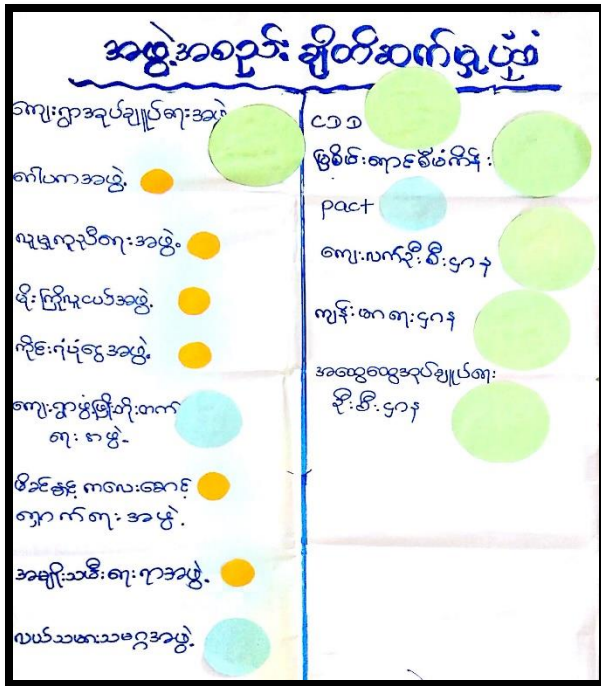 အဖွဲ့အစည်း ချိတ်ဆက်မှုပုံစံ
ကျေးရွာအုပ်ချုပ်ရေးအဖွဲ့
ဂေါပကအဖွဲ့
လူမှုကူညီရေးအဖွဲ့
မိုးကြိုလူငယ်အဖွဲ့
ကိုင်းရံပုံငွေအဖွဲ့
ကျေးရွာဖွံ့ဖြိုးတိုးတက်
ရေးအဖွဲ့
မိခင်နှင့် ကလေးစောင့်
ရှောက်ရေးအဖွဲ့
အမျိုးသမီးရေးရာအဖွဲ့
လယ်သမားသမဂ္ဂအဖွဲ့
CDD
မြစိမ်းရောင်စီမံကိန်း
pact
ကျေးလက်ဦးစီးဌာန
ကျန်းမာရေးဌာန
အထွေထွေအုပ်ချုပ်ရေး
ဦးစီးဌာန